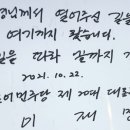 님께서 열어주신 길을
여기까지 왔습니다.
길을 따라 끝까지 가
2021. 10. 22.
민주당 제20대 대
이 재